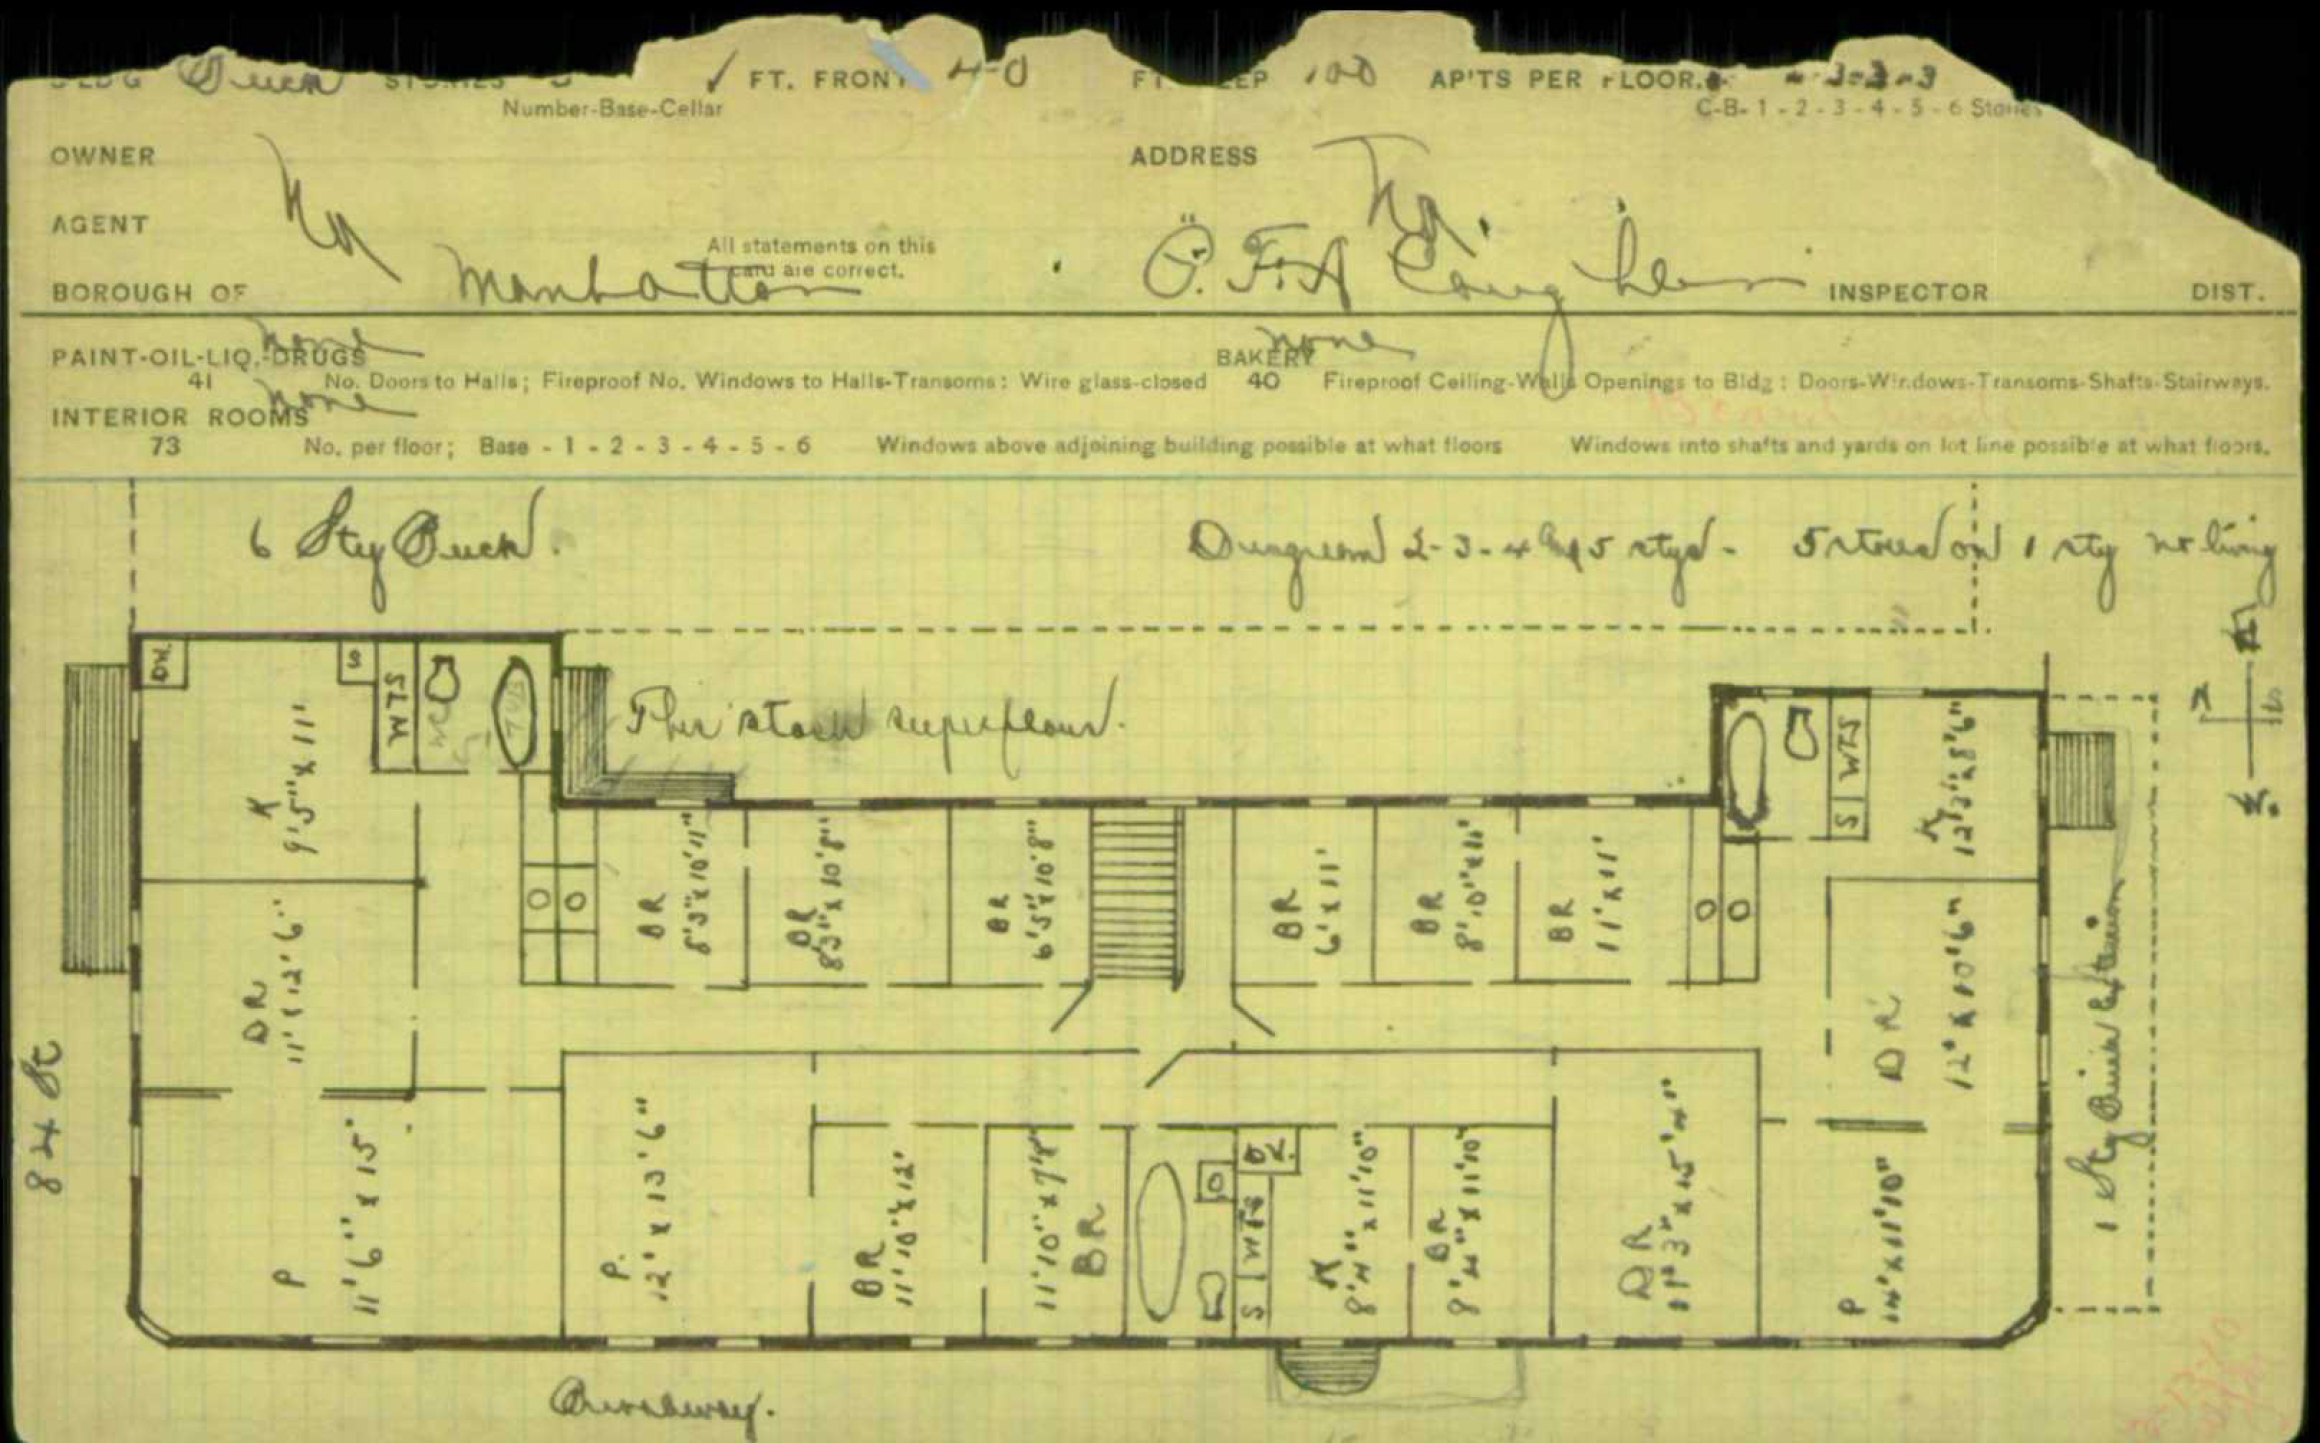 BLDG Brick STORIES FT. FRONT 40 FT. DEEP 100 AP'TS PER FLOOR. - 3-3-3
Number-Base-Cellar C-B- 1 - 2 - 3 - 4 - 5 - 6 Stories
OWNER ADDRESS
AGENT
All statements on this
card are correct.
BOROUGH OF Manhattan INSPECTOR DIST.
PAINT-OIL-LIQ.-DRUGS none BAKERY none
41 No. Doors to Halls; Fireproof No. Windows to Halls-Transoms: Wire glass-closed 40 Fireproof Ceiling-Walls Openings to Bldg: Doors-Windows-Transoms-Shafts-Stairways.
INTERIOR ROOMS none
73 No. per floor; Base - 1 - 2 - 3 - 4 - 5 - 6 Windows above adjoining building possible at what floors Windows into shafts and yards on lot line possible at what floors.
6 Sty Brick.
Diagram 2-3-4 & 5 stys - 5 stores on 1 sty no living
DW.
S
WTS
WC
TUB
K
9'5" x 11'
DR
11' x 12'6"
P
11'6" x 15'
BR
8'3" x 10'11"
BR
8'3" x 10'8"
BR
6'3" x 10'8"
BR
6' x 11'
BR
8'10" x 11'
BR
11' x 11'
S WTS
K
DR
12' x 10'6"
P
14' x 11'10"
P.
12' x 13'6"
BR
11'10" x 12'
11'10" x 7'8"
BR
S WTS
K
8'4" x 11'10"
BR
8'4" x 11'10"
DR
11'3" x 15'4"
84 St
1 Sty Brick Extension
Broadway.